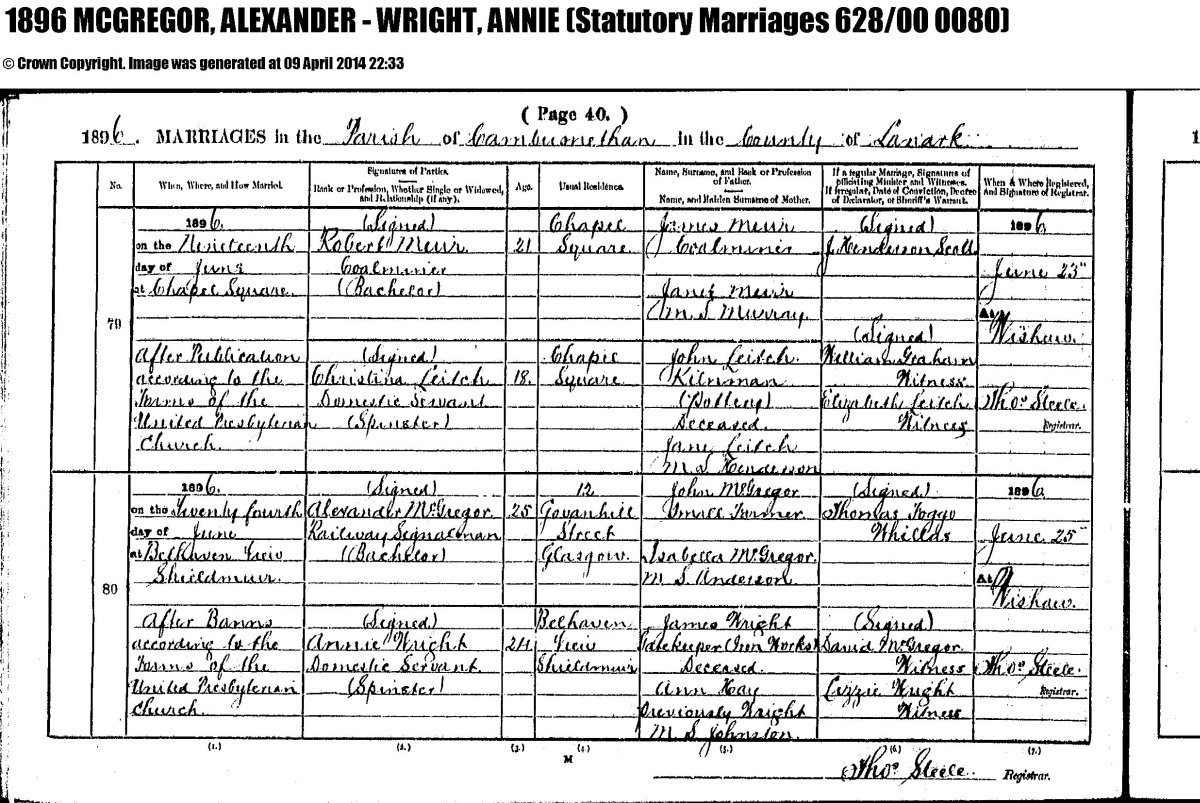 1896 MCGREGOR, ALEXANDER - WRIGHT, ANNIE (Statutory Marriages 628/00 0080)
© Crown Copyright. Image was generated at 09 April 2014 22:33
( Page 40. )
1896. MARRIAGES in the Parish of Cambusnethan in the County of Lanark
1
No.
When, Where, and How Married.
Signatures of Parties.
Rank or Profession, Whether Single or Widowed, and Relationship (if any).
Age.
Usual Residence.
Name, Surname, and Rank or Profession of Father.
Name, and Maiden Surname of Mother.
If a regular Marriage, Signatures of officiating Minister and Witnesses.
If irregular, Date of Conviction, Decree of Declarator, or Sheriff's Warrant.
When & Where Registered, and Signature of Registrar.
79
1896.
on the Nineteenth
day of June
at Chapel Square
After Publication
according to the
Forms of the
United Presbyterian
Church.
(Signed)
Robert Muir
Coalminer
(Bachelor)
(Signed)
Christina Leitch
Domestic Servant
(Spinster)
21
18.
Chapel
Square
Chapel
Square
James Muir
Coalminer
Janet Muir
M.S. Murray
John Leitch.
Kilnman
(Pottery)
Deceased.
Jane Leitch
M.S. Henderson
(Signed)
J. Henderson Scott
(Signed)
William Graham
Witness.
Elizabeth Leitch
Witness
1896
June 23"
At
Wishaw.
Thos Steele.
Registrar.
80
1896.
on the Twenty fourth
day of June
at Belhaven View
Shieldmuir.
After Banns
according to the
Forms of the
United Presbyterian
Church.
(Signed)
Alexander McGregor
Railway Signalman
(Bachelor)
(Signed)
Annie Wright
Domestic Servant
(Spinster)
25
24.
12
Govanhill
Street
Glasgow.
Belhaven
View
Shieldmuir
John McGregor
Small Farmer
Isabella McGregor.
M.S. Anderson
James Wright
Gatekeeper (Iron Works)
Deceased.
Ann Hay
Previously Wright
M.S. Johnston.
(Signed)
Thomas
(Signed)
David McGregor
Witness
Lizzie Wright
Witness
1896
June 25"
At
Wishaw.
Thos Steele
Registrar.
(1.) (2.) (3.) (4.) (5.) (6.) (7.)
M
Thos Steele. Registrar.